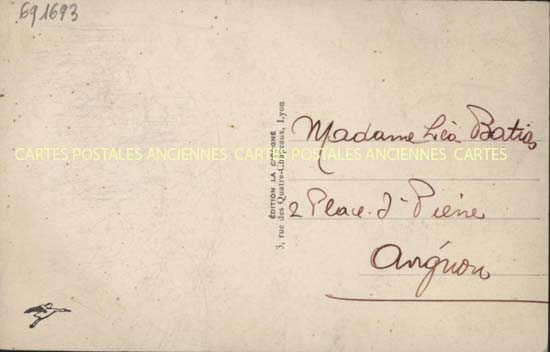 691693
ÉDITION LA CIGOGNE
3, rue des Quatre-Chapeaux, Lyon
Madame Léa Batias
CARTES POSTALES ANCIENNES CARTES POSTALES ANCIENNES CARTES
2 Place. d' Pierre
Avignon